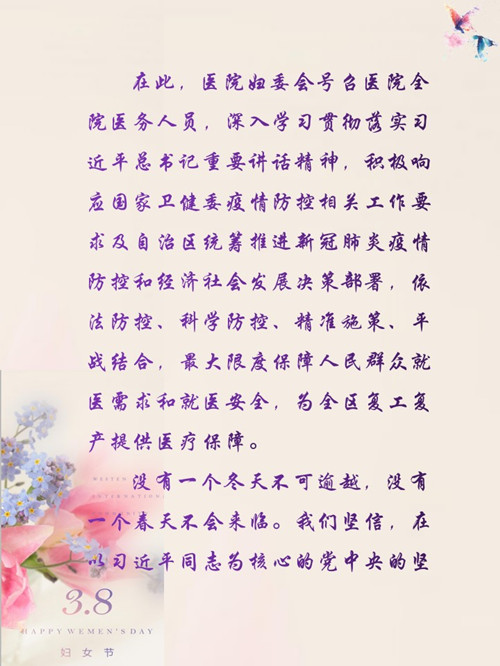 在此，医院妇委会号召医院全
院医务人员，深入学习贯彻落实习
近平总书记重要讲话精神，积极响
应国家卫健委疫情防控相关工作要
求及自治区统筹推进新冠肺炎疫情
防控和经济社会发展决策部署，依
法防控、科学防控、精准施策、平
战结合，最大限度保障人民群众就
医需求和就医安全，为全区复工复
产提供医疗保障。
没有一个冬天不可逾越，没有
一个春天不会来临。我们坚信，在
以习近平同志为核心的党中央的坚
3.8
HAPPY WEMEN'S DAY
妇女节